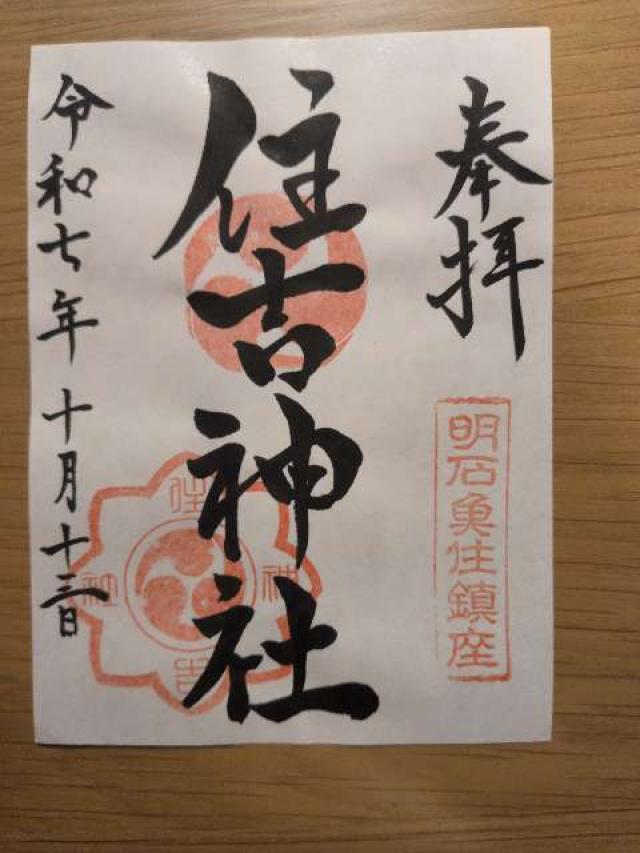 奉拝
明石魚住鎮座
住吉神社
住吉神社
令和七年十月十三日